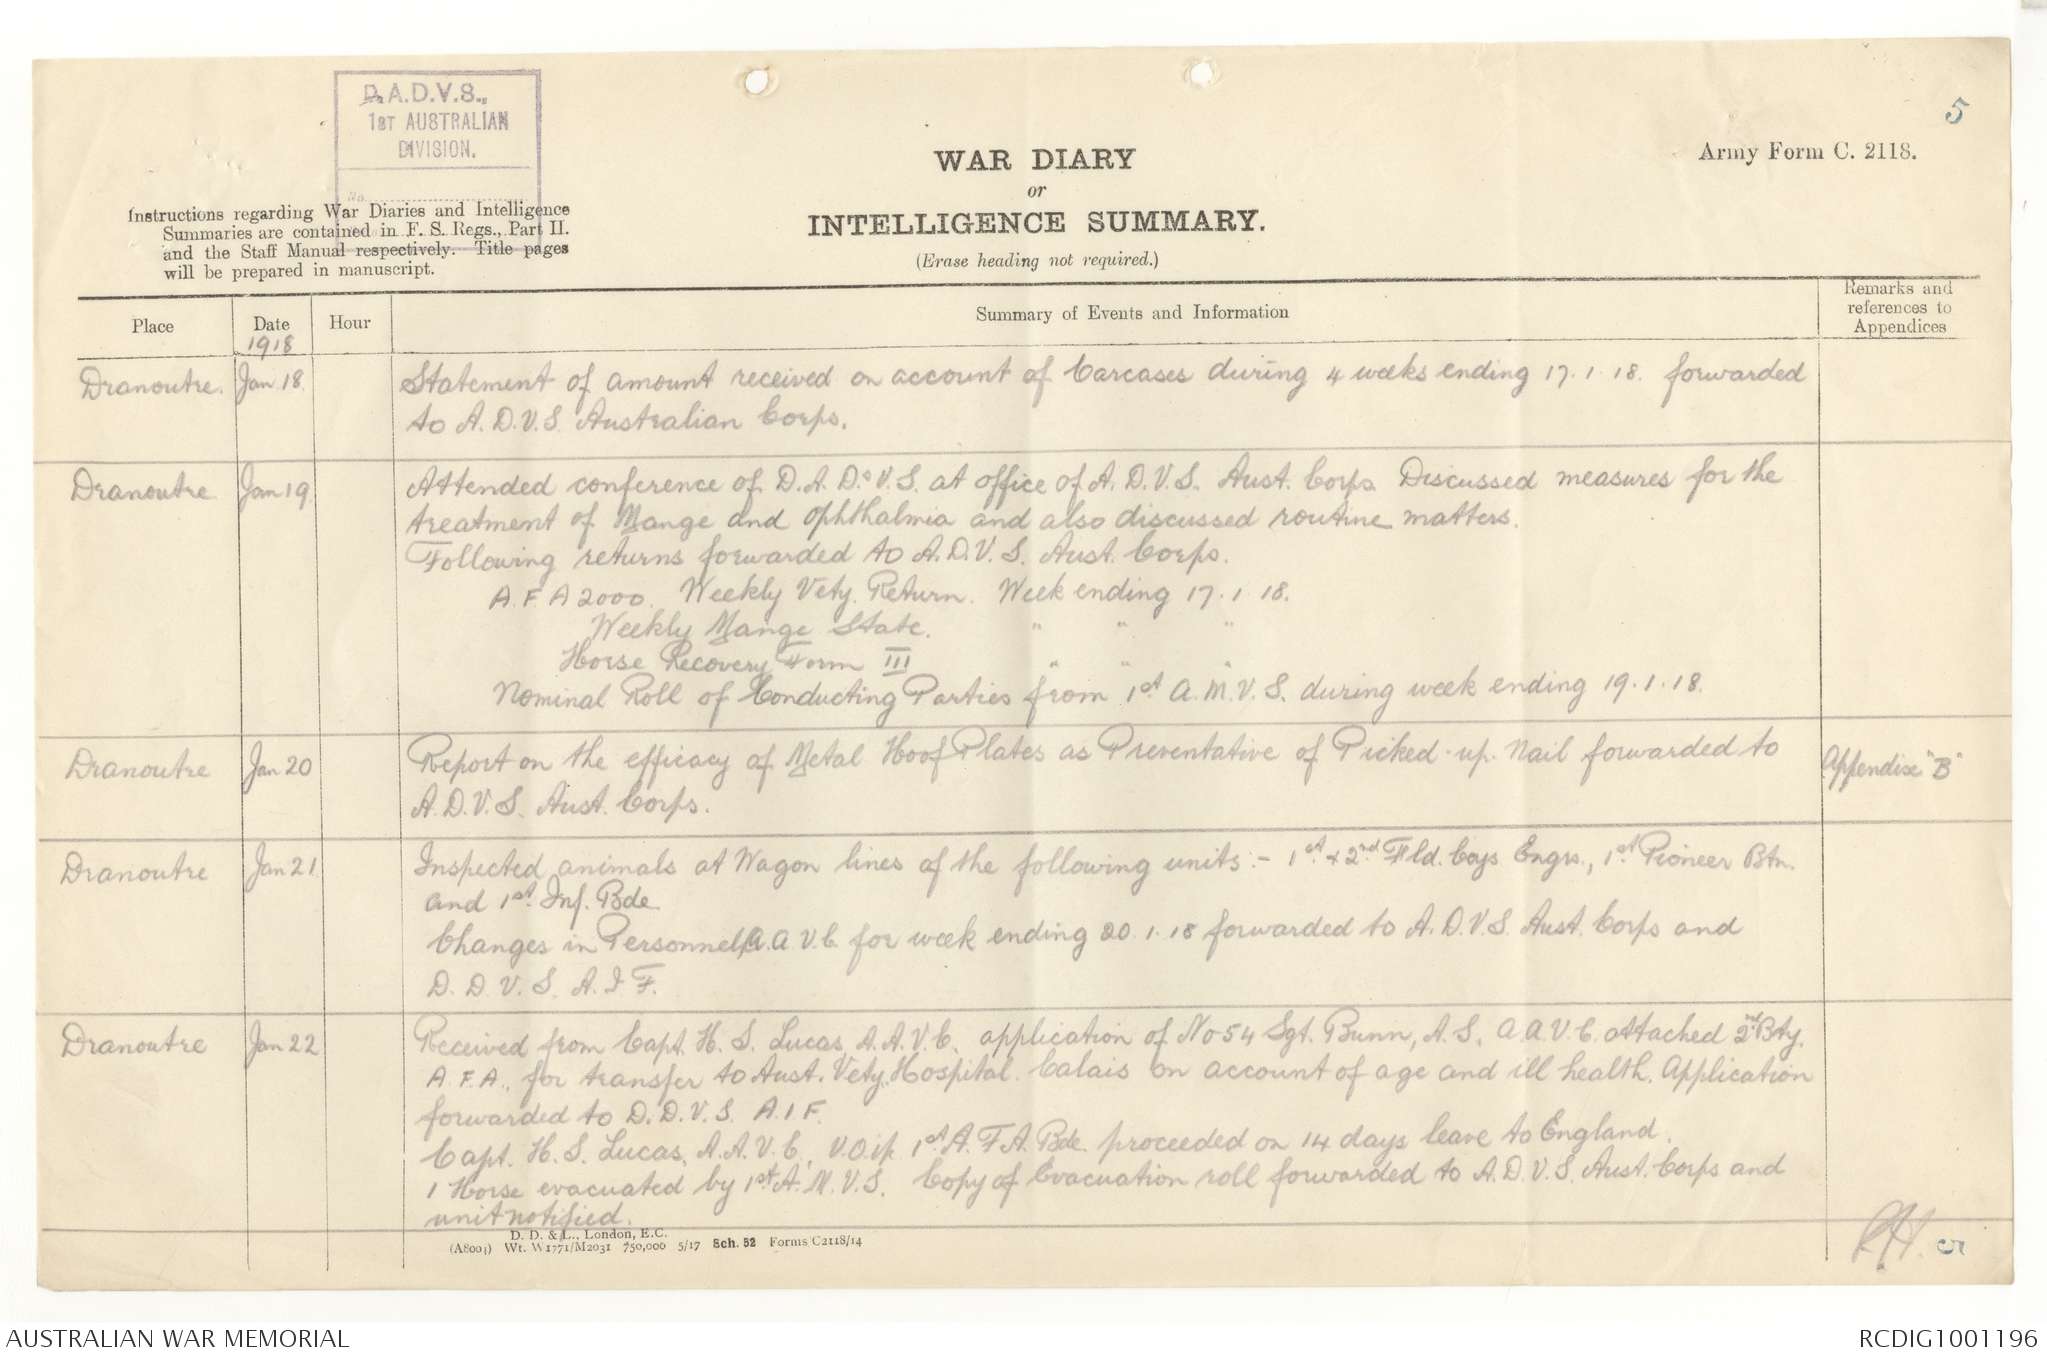 D.A.D.V.S.,
1ST AUSTRALIAN
DIVISION.
No.
5
Army Form C. 2118.
WAR DIARY
or
INTELLIGENCE SUMMARY.
(Erase heading not required.)
Instructions regarding War Diaries and Intelligence
Summaries are contained in F. S. Regs., Part II.
and the Staff Manual respectively. Title pages
will be prepared in manuscript.
Place
Date
1918
Hour
Summary of Events and Information
Remarks and
references to
Appendices
Dranoutre. Jan 18. Statement of amount received on account of Carcases during 4 weeks ending 17.1.18. forwarded
to A.D.V.S. Australian Corps.
Dranoutre Jan 19. Attended conference of D.A.Ds.V.S. at office of A.D.V.S. Aust. Corps. Discussed measures for the
treatment of Mange and Ophthalmia and also discussed routine matters.
Following returns forwarded to A.D.V.S. Aust. Corps.
A.F.A 2000. Weekly Vety. Return. Week ending 17.1.18.
Weekly Mange State. " " "
Horse Recovery Form III " " "
Nominal Roll of Conducting Parties from 1st A.M.V.S. during week ending 19.1.18.
Dranoutre Jan 20 Report on the efficacy of Metal Hoof Plates as Preventative of Picked-up Nail forwarded to Appendix "B"
A.D.V.S. Aust. Corps.
Dranoutre Jan 21 Inspected animals at Wagon lines of the following units:- 1st & 2nd Fld. Coys Engrs., 1st Pioneer Btn.
and 1st Inf. Bde
Changes in Personnel, A.A.V.C. for week ending 20.1.18 forwarded to A.D.V.S. Aust. Corps and
D.D.V.S. A.I.F.
Dranoutre Jan 22 Received from Capt. H. S. Lucas A.A.V.C. application of No 54 Sgt. Bunn, A.S. A.A.V.C. attached 2nd Bty.
A.F.A., for transfer to Aust. Vety. Hospital. Calais on account of age and ill health. Application
forwarded to D.D.V.S. A.I.F.
Capt. H. S. Lucas, A.A.V.C., V.O. i/c 1st A.F.A. Bde. proceeded on 14 days leave to England.
1 Horse evacuated by 1st A.M.V.S. Copy of Evacuation roll forwarded to A.D.V.S. Aust. Corps and
unit notified.
D. D. & L., London, E.C.
(A8004) Wt. W1771/M2031 750,000 5/17 Sch. 52 Forms/C2118/14
5
AUSTRALIAN WAR MEMORIAL
RCDIG1001196